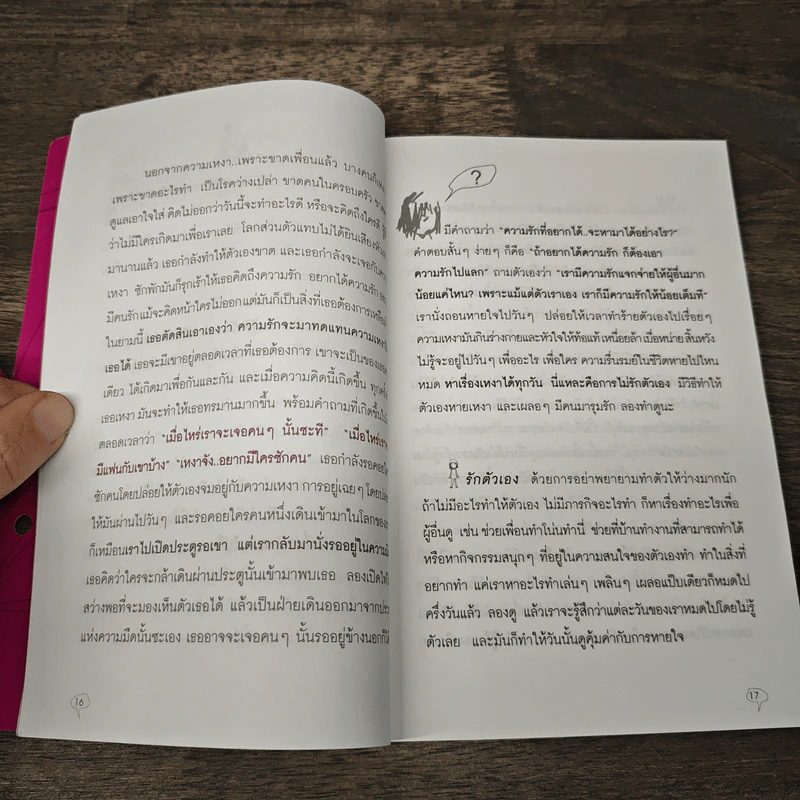 นอกจากความเหงา..เพราะขาดเพื่อนแล้ว บางคนก็เหงา
เพราะขาดอะไรทำ เป็นโรคว่างเปล่า ขาดคนในครอบครัว
ดูแลเอาใจใส่ คิดไม่ออกว่าวันนี้จะทำอะไรดี หรือจะคิดถึงใครดี
ว่าไม่มีใครเกิดมาเพื่อเราเลย โลกส่วนตัวแทบไม่ได้ยินเสียง
มานานแล้ว เธอกำลังทำให้ตัวเองขาด และเธอกำลังจะเจอกับ
เหงา ซักพักมันก็รุกเร้าให้เธอคิดถึงความรัก อยากได้ความรัก
มีคนรักแม้จะคิดหน้าใครไม่ออกแต่มันก็เป็นสิ่งที่เธอต้องการ
ในยามนี้ เธอตัดสินเอาเองว่า ความรักจะมาทดแทนความเหงา
เธอได้ เธอจะมีเขาอยู่ตลอดเวลาที่เธอต้องการ เขาจะเป็นของ
เดียว ได้เกิดมาเพื่อกันและกัน และเมื่อความคิดนี้เกิดขึ้น
เธอเหงา มันจะทำให้เธอทรมานมากขึ้น พร้อมคำถามที่เกิดขึ้น
ตลอดเวลาว่า "เมื่อไหร่เราจะเจอคนๆ นั้นซะที" "เมื่อไหร่เรา
มีแฟนกับเขาบ้าง" "เหงาจัง..อยากมีใครซักคน" เธอกำลังรอคอย
ซักคนโดยปล่อยให้ตัวเองจมอยู่กับความเหงา การอยู่เฉยๆ
ให้มันผ่านไปวันๆ และรอคอยใครคนหนึ่งเดินเข้ามาในโลกของ
ก็เหมือนเราไปเปิดประตูรอเขา แต่เรากลับมานั่งรออยู่ในความ
เธอคิดว่าใครจะกล้าเดินผ่านประตูนั้นเข้ามาพบเธอ ลองเปิดไฟ
สว่างพอที่จะมองเห็นตัวเธอได้ แล้วเป็นฝ่ายเดินออกมาจาก
แห่งความมืดนั้นซะเอง เธออาจจะเจอคนๆ นั้นรออยู่ข้างนอกก็ได้
16
?
มีคำถามว่า "ความรักที่อยากได้..จะหามาได้อย่างไร?"
คำตอบสั้นๆ ง่ายๆ ก็คือ "ถ้าอยากได้ความรัก ก็ต้องเอา
ความรักไปแลก" ถามตัวเองว่า "เรามีความรักแจกจ่ายให้ผู้อื่นมาก
น้อยแค่ไหน? เพราะแม้แต่ตัวเราเอง เราก็มีความรักให้น้อยเต็มที"
เรานั่งถอนหายใจไปวันๆ ปล่อยให้เวลาทำร้ายตัวเองไปเรื่อยๆ
ความเหงามันกินร่างกายและหัวใจให้ท้อแท้ เหนื่อยล้า เบื่อหน่าย สิ้นหวัง
ไม่รู้จะอยู่ไปวันๆ เพื่ออะไร เพื่อใคร ความรื่นรมย์ในชีวิตหายไปไหน
หมด หาเรื่องเหงาได้ทุกวัน นี่แหละคือการไม่รักตัวเอง มีวิธีทำให้
ตัวเองหายเหงา และเผลอๆ มีคนมารุมรัก ลองทำดูนะ
รักตัวเอง ด้วยการอย่าพยายามทำตัวให้ว่างมากนัก
ถ้าไม่มีอะไรทำให้ตัวเอง ไม่มีภารกิจอะไรทำ ก็หาเรื่องทำอะไรเพื่อ
ผู้อื่นดู เช่น ช่วยเพื่อนทำโน่นทำนี่ ช่วยที่บ้านทำงานที่สามารถทำได้
หรือหากิจกรรมสนุกๆ ที่อยู่ในความสนใจของตัวเองทำ ทำในสิ่งที่
อยากทำ แค่เราหาอะไรทำเล่นๆ เพลินๆ เผลอแป๊บเดียวก็หมดไป
ครึ่งวันแล้ว ลองดู แล้วเราจะรู้สึกว่าแต่ละวันของเราหมดไปโดยไม่รู้
ตัวเลย และมันก็ทำให้วันนั้นดูคุ้มค่ากับการหายใจ
17